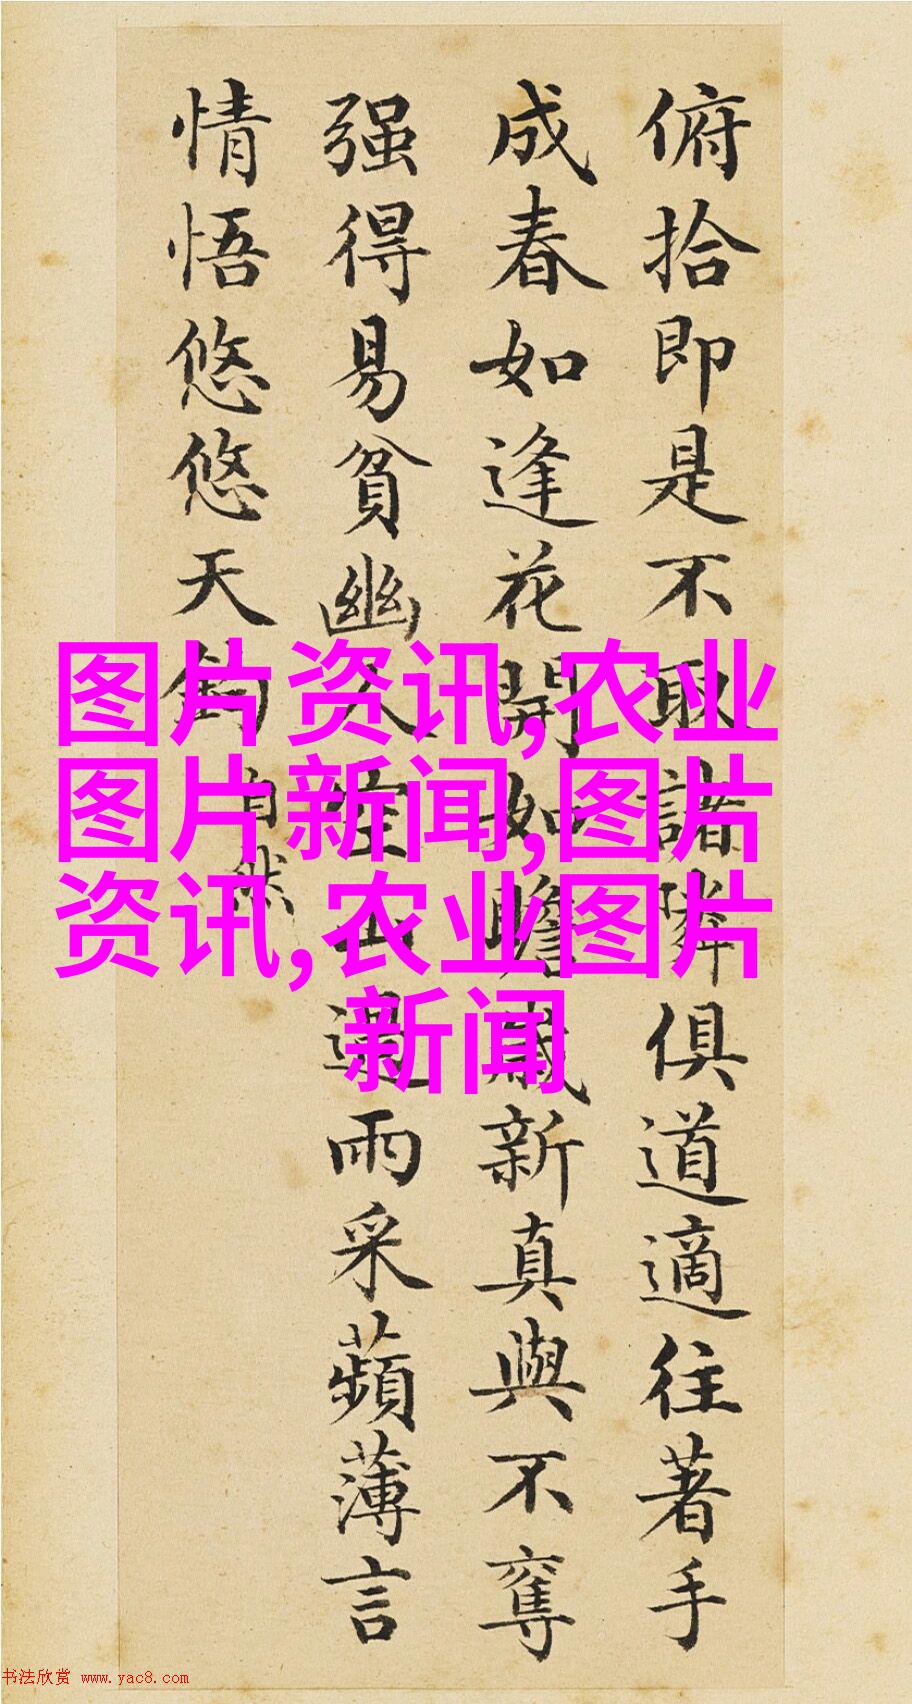 俯拾即是不取諸隣俱道適往著手
成春如逢花開如瞻歲新真與不奪
强得易貧幽人空山過雨采蘋薄言
情悟悠悠天鈞
自然
图片资讯,农业
图片新闻,图片
资讯,农业图片
新闻
书法欣赏 www.yac8.com